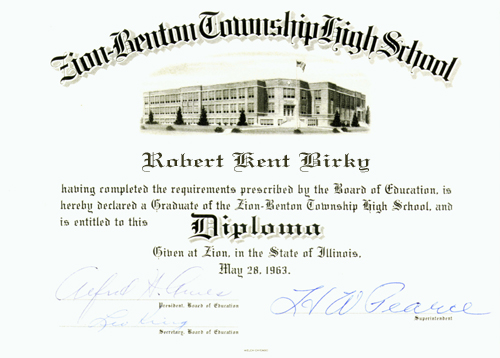 Zion-Benton Township High School
Robert Kent Birky
having completed the requirements prescribed by the Board of Education, is
hereby declared a Graduate of the Zion-Benton Township High School, and
is entitled to this Diploma
Given at Zion, in the State of Illinois,
May 28, 1963.
President, Board of Education
H W Pearce
Superintendent
Secretary, Board of Education